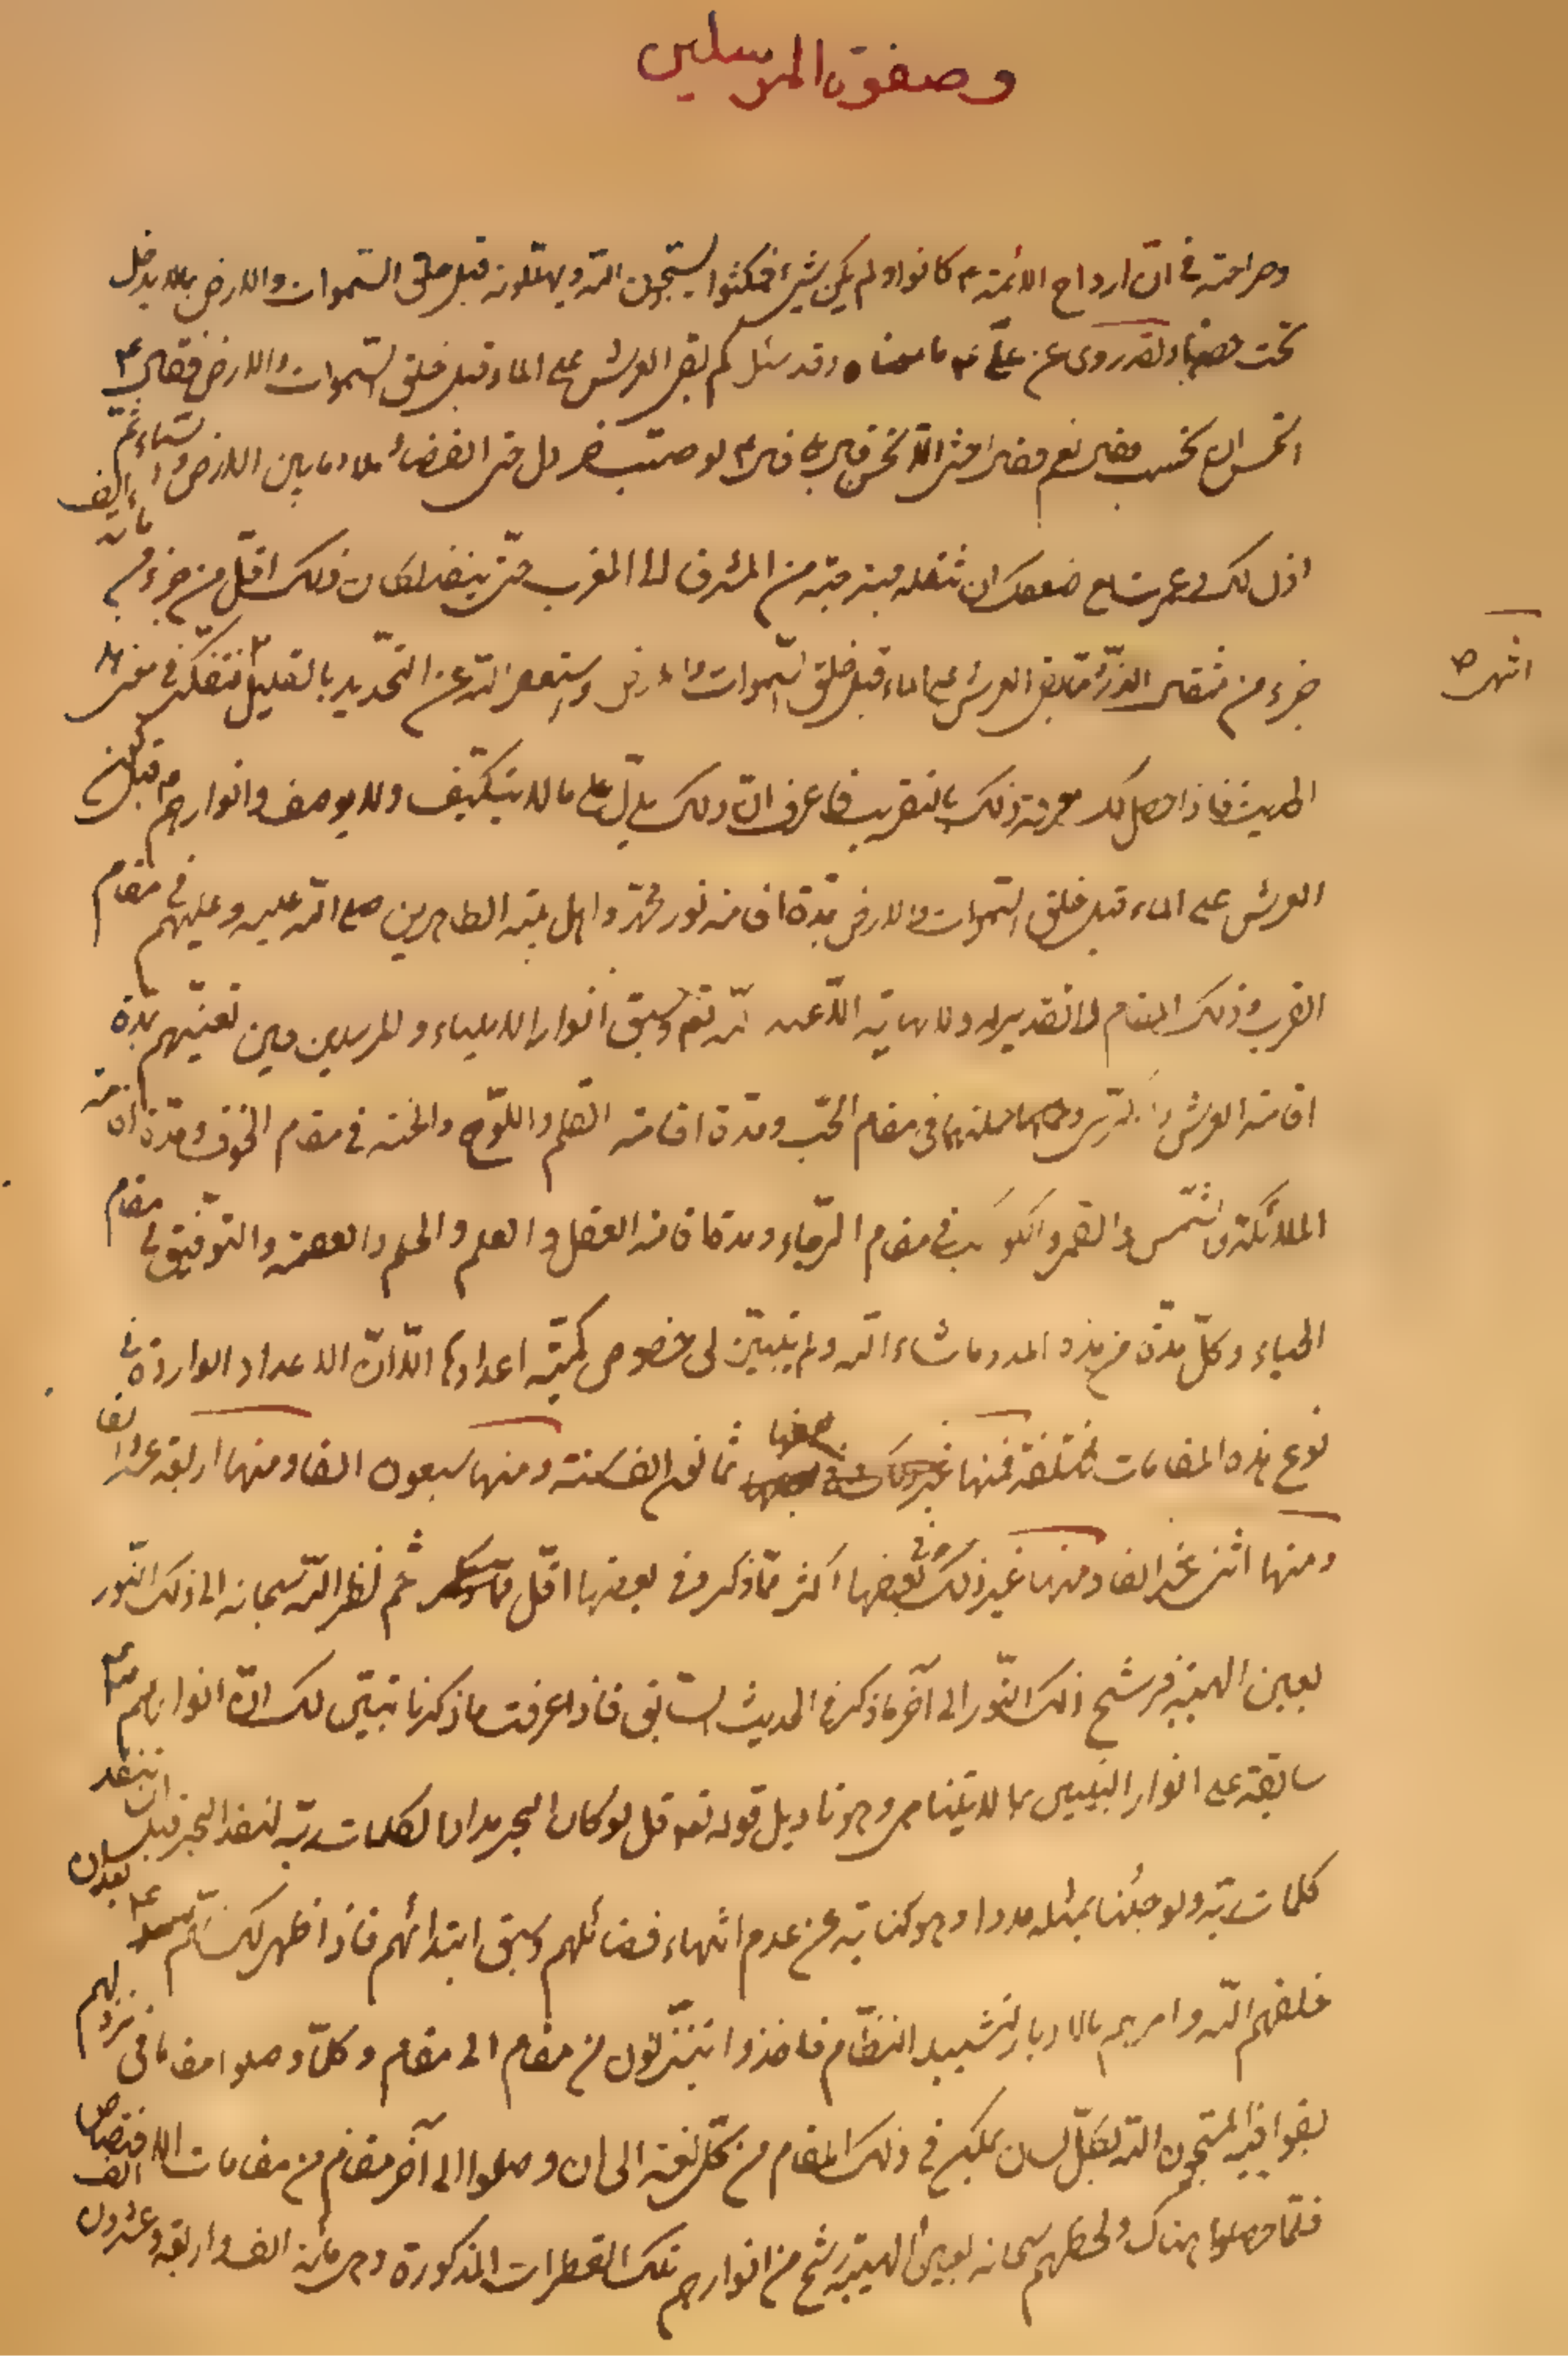 وصفوة المرسلين
وصراحته في انّ ارواح الائمة ع كانوا ولم يكن شيئ فمكثوا يسبّحون اللّه ويهلّلونه قبل خلق السّموات والارض بما لا يدخل
تحت ولقد روى عن علىّ ع ما معناه وقد سئل كم بقى العرش على الماء قبل خلق السّموات والارض فقال ع
اتحسن ان تحسب فقال نعم فقال اخشى الّا تحسن قال ع لو صبّ خردل حتى الفضاء وملا ما بين الارض والسّماء ثمّ
اذن لك وعمرت مع ضعفك ان تنقله حبّة حبّة من المشرق الى المغرب حتّى ينفد لكان ذلك اقلّ من جزء من مائة الف
جزء من مثقال الذّرّ ممّا بقى العرش على الماء قبل خلق السّموات والارض واستغفر اللّه عن التّحديد بالقليل فتفكّر في معنى هذا
انتهى
الحديث فاذا حصل لك معرفة ذلك بالتقريب فاعرف انّ ذلك يدلّ على ما لا يتكيّف ولا يوصف وانوارهم ع قبل كون
العرش على الماء قبل خلق السّموات والارض مدّة اقامة نور محمّد واهل بيته الطاهرين صلى اللّه عليه وعليهم في مقام
القرب وذلك المقام لا تقدير له ولا نهاية الّا عند اللّه تع وسبق انوار الانبياء والمرسلين حين تعيّنهم مدّة
اقامة العرش والكرسى وحملتهما في مقام الحبّ ومدة اقامة القلم واللّوح والجنه في مقام الخوف ومدّة اقامة
الملائكة والشّمس والقمر والكواكب في مقام الرّجاء ومدة اقامة العقل والعلم والحلم والعصمة والتوفيق في مقام
الحياء وكلّ مدّة من هذه المدد ما شاء اللّه ولم يتبيّن لى خصوص كميّة اعدادها الّا انّ الاعداد الواردة في
نوع هذه المقامات مختلفة فمنها ثمانون الف سنة ومنها سبعون الفا ومنها اربعة عشر الفا
ومنها اثنى عشر الفا ومنها غير ذلك وفي بعضها اكثر ممّا ذكر وفي بعضها اقلّ ممّا ذكر ثم نظر اللّه سبحانه الى ذلك النّور
بعين الهيبة فرشح ذلك النّور الى آخر ما ذكر في الحديث السّابق فاذا عرفت ما ذكرنا تبيّن لك انّ انوارهم ع
سابقة على انوار النبيين بما لا يتناهى وهو تاويل قوله تع قل لو كان البحر مدادا لكلمات ربّى لنفد البحر قبل ان تنفد
كلمات ربّى ولو جئنا بمثله مددا وهو كناية عن عدم انتهاء فضائلهم وسبق ابتدائهم فاذا ظهر لك انّهم ع بعد ان
خلقهم اللّه وامرهم بالادبار لتشييد النظام فاخذوا يتنزّلون من مقام الى مقام وكلّما وصلوا مقاما في نزولهم
بقوا فيه يسبّحون اللّه بكلّ لسان يمكن في ذلك المقام من كلّ لغة الى ان وصلوا الى آخر مقام من مقامات الاختصاص
فلمّا وصلوا هناك ولحظهم سبحانه بعين الهيبة رشح من انوارهم تلك القطرات المذكورة وهى مائة الف واربعة وعشرون الف